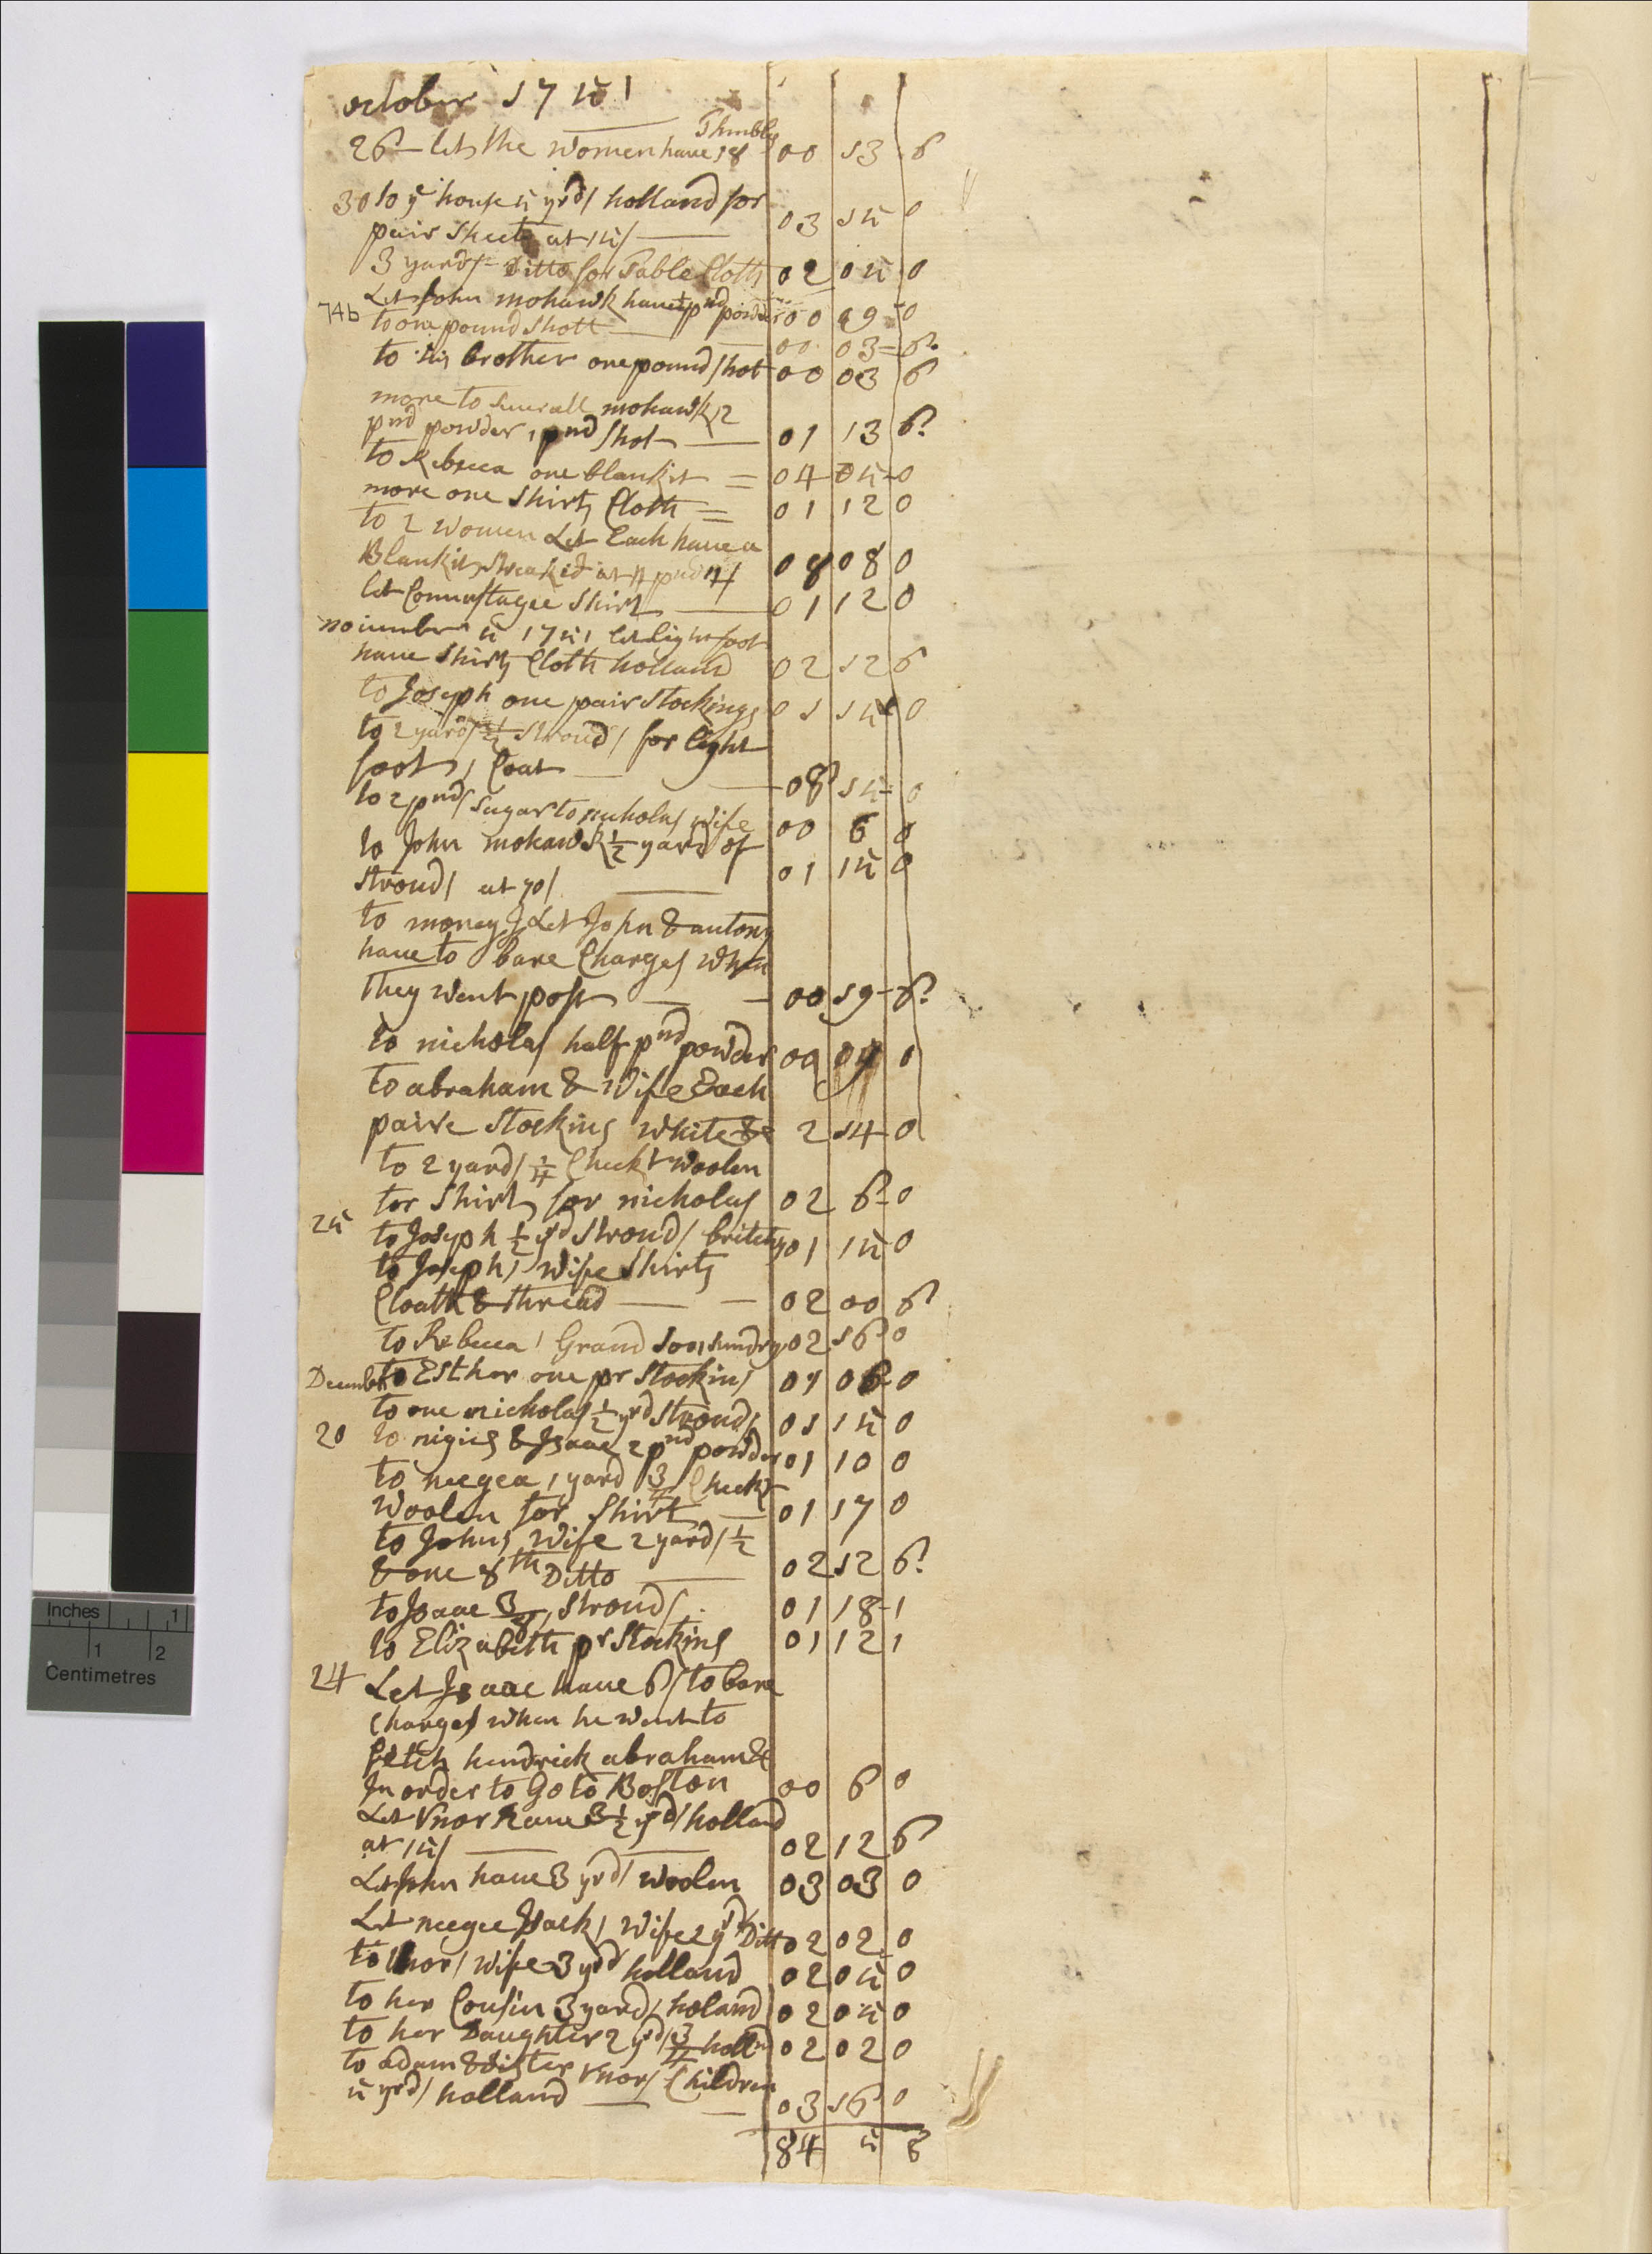 october 1751
Thmbls
26 - let the women have 18 00 13 6
30 to ye house 5 yrds holland for
pair Sheets at 15/ 03 15 0
3 yards Ditto for Table Cloth 02 05 0
Let John mohawk have ½ pnd powder 00 09 0
74b
to one pound Shott 00 03 6
to his brother one pound shot 00 03 6
more to Severall mohawks 2
pnd powder, 1 pnd shot 01 13 6
to Rebecca one blankit = 04 05 0
more one Shirts Cloth = 01 12 0
to 2 women Let Each have a
Blankit Streaked at 4 pnd 4/ 08 08 0
let Connastagee Shirt 01 12 0
november 5 1751 let light foot
have Shirts Cloth holland 02 12 6
to Joseph one pair Stockings 01 15 0
to 2 yards ½ Strouds for light
foots Coat 08 15 0
to 2 pnds Sugar to nicholas wife 00 6 0
to John mohawk ½ yard of
Strouds at 70/ 01 15 0
to money I Let John & antony
have to bare Charges when
They went post 00 19 6
to nicholas half pnd powder 00 0
to abraham & Wife Each
paire Stockins white & 2 14 0
to 2 yards ¼ Checkt Woolen
for Shirt for nicholas 02 6 0
25 to Joseph ½ yrd Strouds 01 15 0
to Josephs Wife Shirts
Cloath & thread 02 00 6
to Rebecca's Grand Son sundrys 02 16 0
Decembr to Esther one pr Stockins 01 06 0
to one nicholas ½ yrd Strouds 01 15 0
20 to nigies & Isaac 2 pnd powder 01 10 0
to neegea 1 yard ¾ Checkt
Woolen for Shirt 01 17 0
to Johns Wife 2 yards ½
& one 8th Ditto 02 12 6
to Isaac 3/8 Strouds 01 18 1
to Elizabeth pr Stockins 01 12 1
24 Let Isaac have 6/ to bare
Charges when he went to
fetch hendrick abraham &c
In order to Go to Boston 00 6 0
Let vnor have 3½ yrds holland
at 15/ 02 12 6
Let John have 3 yrds Woolen 03 03 0
Let neegee Isack's Wife 2 yrds Ditto 02 02 0
to vnors wife 3 yrd holland 02 05 0
to her Cousin 3 yards holand 02 05 0
to her Daughter 2 yrds ¾ holld 02 02 0
to adam & sister vnors Children
5 yrds holland 03 16 0
84 5 8
Inches 1
1 2
Centimetres